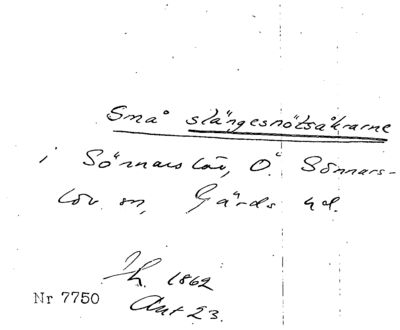 Små slängesnötsåkrarne
i Sönnarslöv, Ö. Sönnars-
löv sn, Gärds hd.
Th. 1862
Nr 7750
Akt 23.